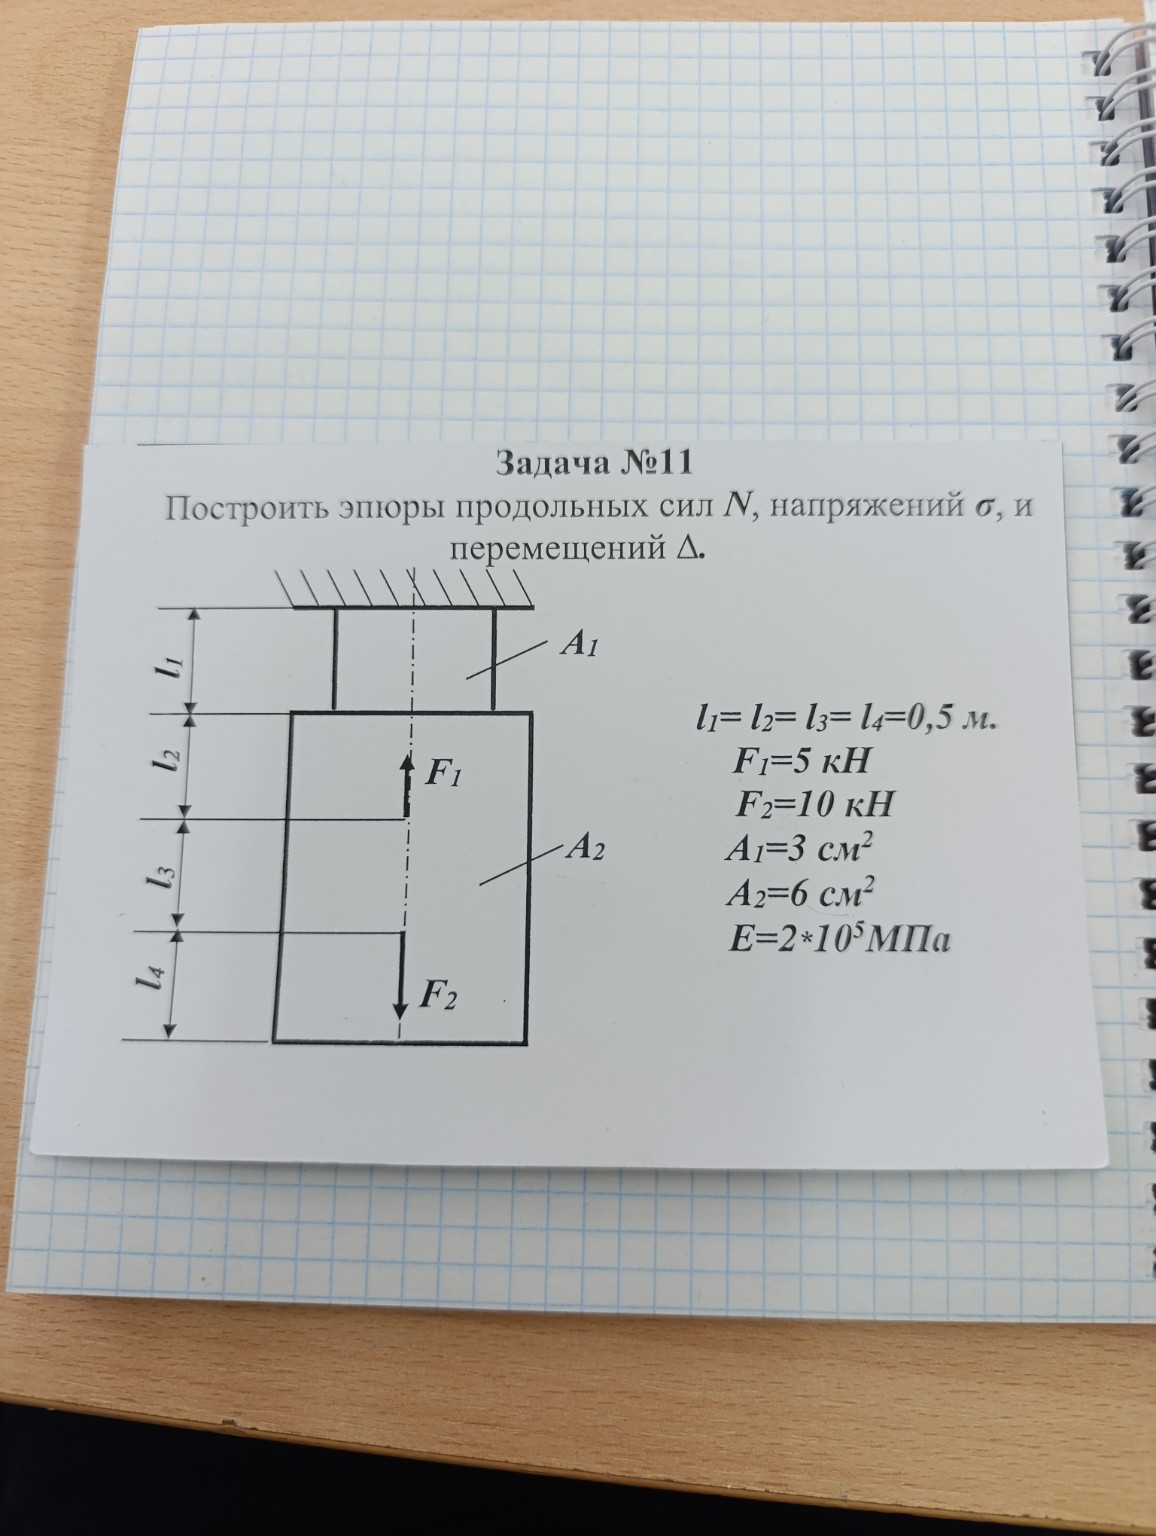 Задача №11
Построить эпюры продольных сил N, напряжений σ, и
перемещений Δ.
l₁
A₁
l₂
F₁
l₃
A₂
l₄
F₂
l₁= l₂= l₃= l₄=0,5 м.
F₁=5 кН
F₂=10 кН
A₁=3 см²
A₂=6 см²
E=2*10⁵МПа